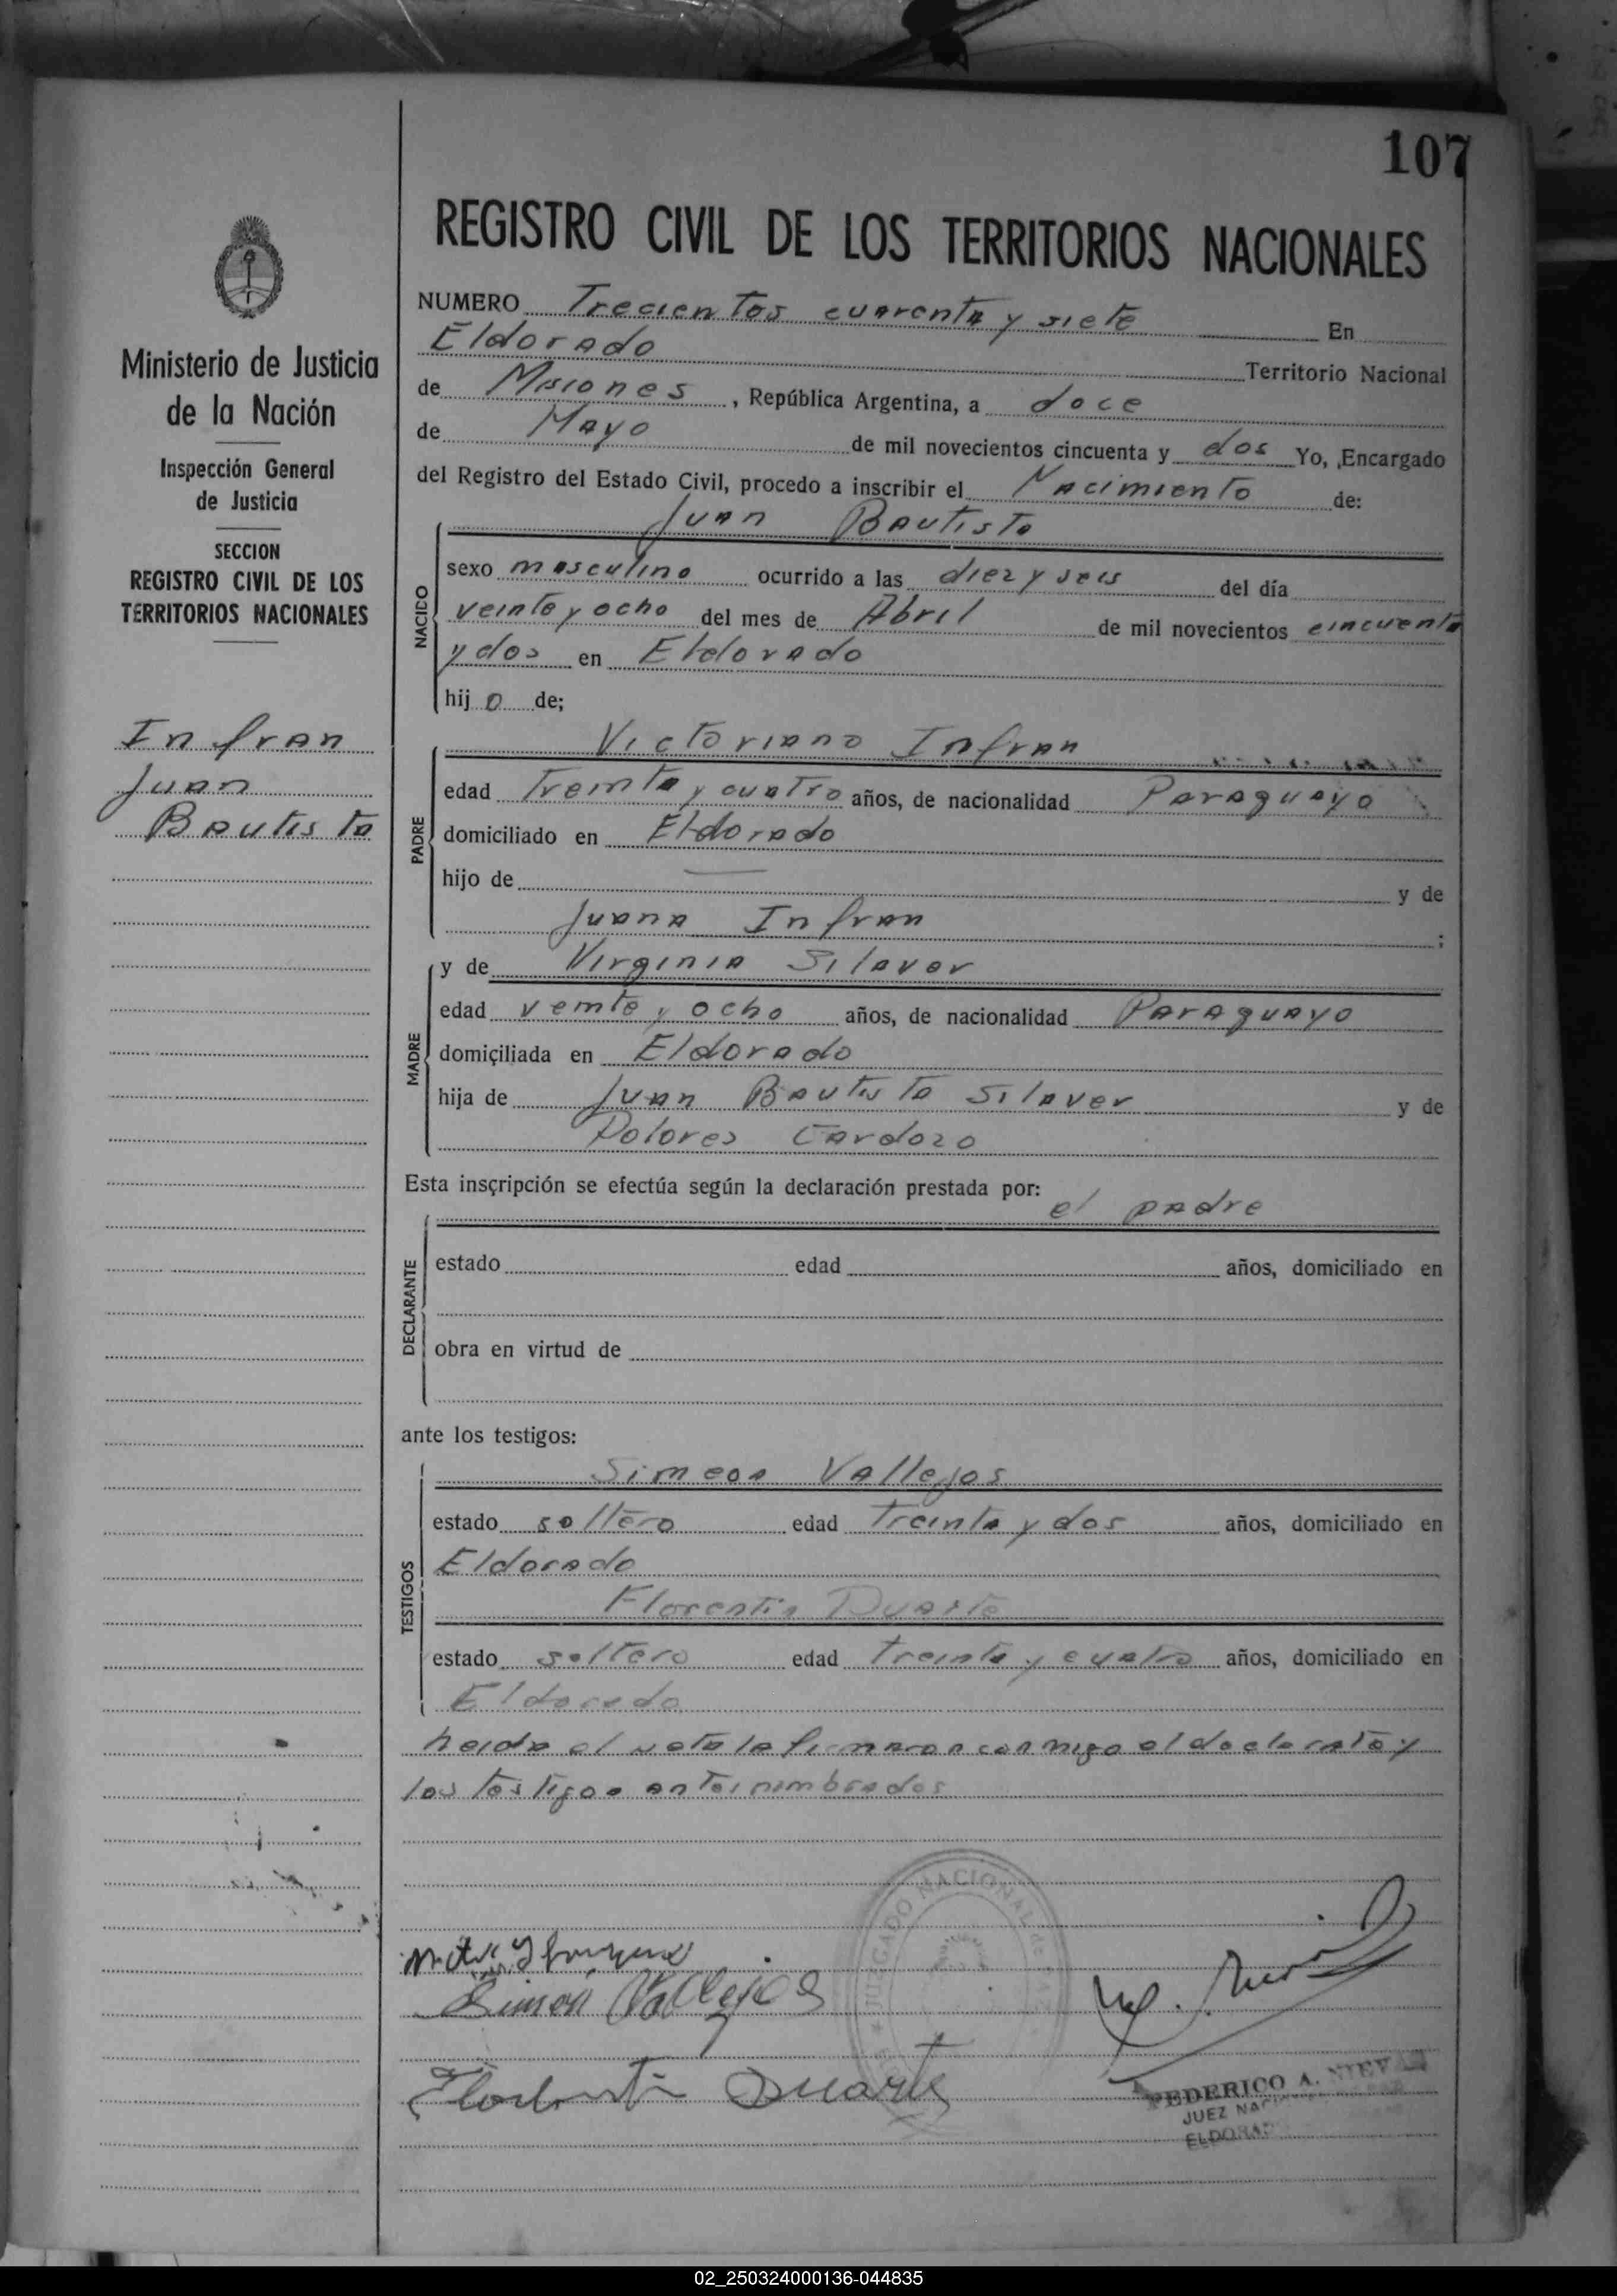 107
REGISTRO CIVIL DE LOS TERRITORIOS NACIONALES
Ministerio de Justicia
de la Nación
Inspección General
de Justicia
SECCION
REGISTRO CIVIL DE LOS
TERRITORIOS NACIONALES
Infran
Juan
Bautista
NUMERO Trecientos cuarenta y siete En
Eldorado Territorio Nacional
de Misiones, República Argentina, a doce
de Mayo de mil novecientos cincuenta y dos Yo, Encargado
del Registro del Estado Civil, procedo a inscribir el Nacimiento de:
Juan Bautista
NACIDO
sexo masculino ocurrido a las diez y seis del día
veinte y ocho del mes de Abril de mil novecientos cincuenta
y dos en Eldorado
hijo de;
PADRE
Victoriano Infran
edad Treinta y cuatro años, de nacionalidad Paraguaya
domiciliado en Eldorado
hijo de — y de
Juana Infran ;
MADRE
y de Virginia Silaver
edad veinte y ocho años, de nacionalidad Paraguayo
domiciliada en Eldorado
hija de Juan Bautista Silaver y de
Dolores Cardozo
Esta inscripción se efectúa según la declaración prestada por:
el padre
DECLARANTE
estado edad años, domiciliado en
obra en virtud de
ante los testigos:
TESTIGOS
Simeon Vallejos
estado soltero edad Treinta y dos años, domiciliado en
Eldorado
Florentin Duarte
estado soltero edad treinta y cuatro años, domiciliado en
Eldorado
leida el acta la firmaron conmigo el declarate y
los testigos antes nombrados
JUZGADO NACIONAL de PAZ
Simón Vallejos
Duarte
FEDERICO A. NIEV
JUEZ NAC
ELDORAD
02_250324000136-044835